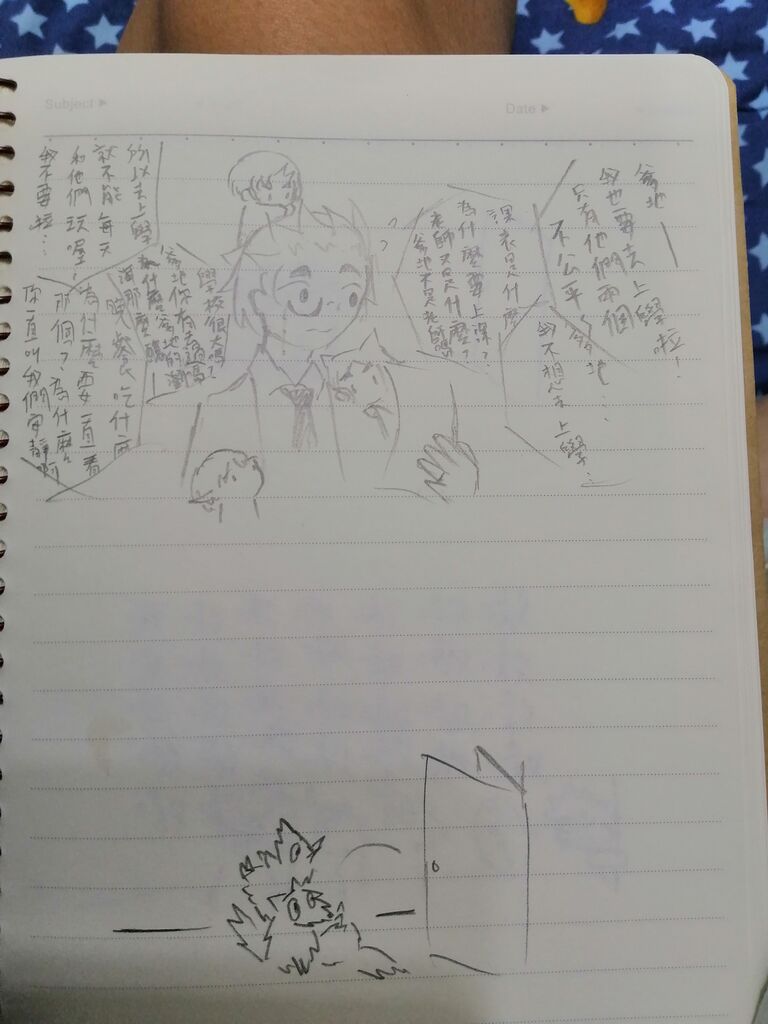 Subject ▶
Date ▶
爹地
我也要去上學啦!
只有他們兩個
不公平
爹地...
我不想去上學...
課表是什麼
為什麼要上課?
老師又是什麼?
爹地不是老師嗎
學校很大嗎?
爹地你有去過嗎
為什麼爹地的瀏
海那麼
晚餐吃什麼
所以去上學
就不能每天
和他們玩喔!
我不要啦...
為什麼要一直看
那個?為什麼
你一直叫我們安靜啊